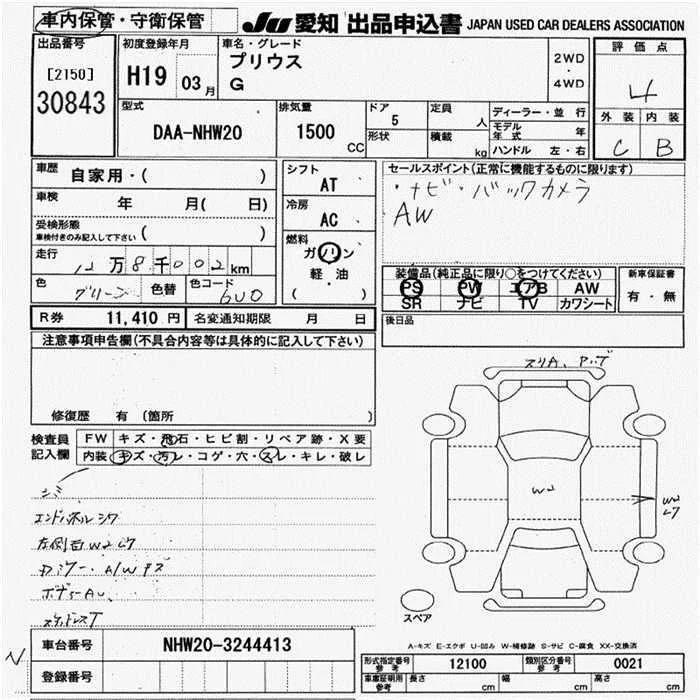 車内保管・守衛保管
JU 愛知 出品申込書 JAPAN USED CAR DEALERS ASSOCIATION
出品番号
[2150]
30843
初度登録年月
H19 03月
車名・グレード
プリウス
G
2WD
・
4WD
評価点
4
外装 内装
C B
型式
DAA-NHW20
排気量
1500
CC
ドア 5
形状
定員 人
積載 kg
ディーラー・並行
モデル年式 年
ハンドル 左・右
車歴 自家用・( )
車検 年 月( 日)
受検形態
車検付きのみ記入して下さい ( )
走行 12万8千002km
色 グリーン 色替 色コード 6U0
シフト
AT
冷房
AC
燃料
ガソリン
軽・油
( )
セールスポイント(正常に機能するものに限ります)
・ナビ・バックカメラ
AW
装備品(純正品に限り○をつけてください)
PS PW エアB AW
SR ナビ TV カワシート
新車保証書
有・無
R券 11,410円 名変通知期限 月 日
後日品
注意事項申告欄(不具合内容等は具体的に記入して下さい)
修復歴 有 (箇所 )
検査員記入欄
FW キズ・飛石・ヒビ割・リペア跡・X要
内装 キズ・汚レ・コゲ・穴・スレ・キレ・破レ
シミ
エンドバネルシワ
左側面W2ヒワ
Dミラー・A/Wキズ
ボデーAU
W2
W2
スペア
A-キズ E-エクボ U-凹み W-補修跡 S-サビ C-腐食 XX-交換済
車台番号 NHW20-3244413
登録番号
N
形式指定番号 参考 12100 類別区分番号 参考 0021
車庫証明用 参考 長さ cm 幅 cm 高さ cm